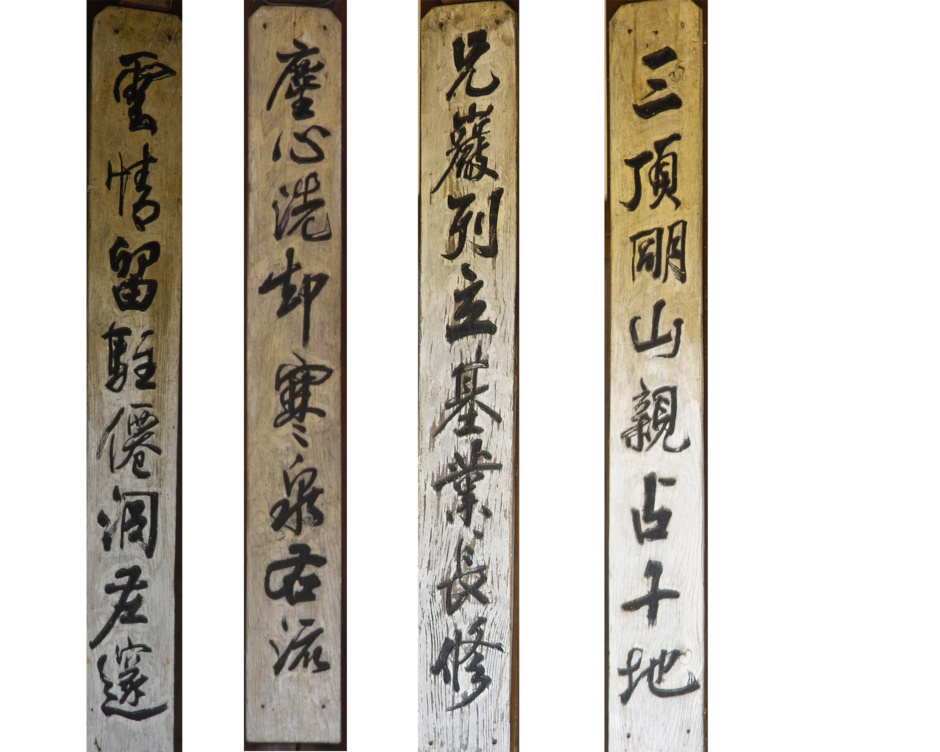 三頂剛山親占千地
兄巖列立基業長修
塵心洗却寒泉右流
雲情留駐僊洞左邃